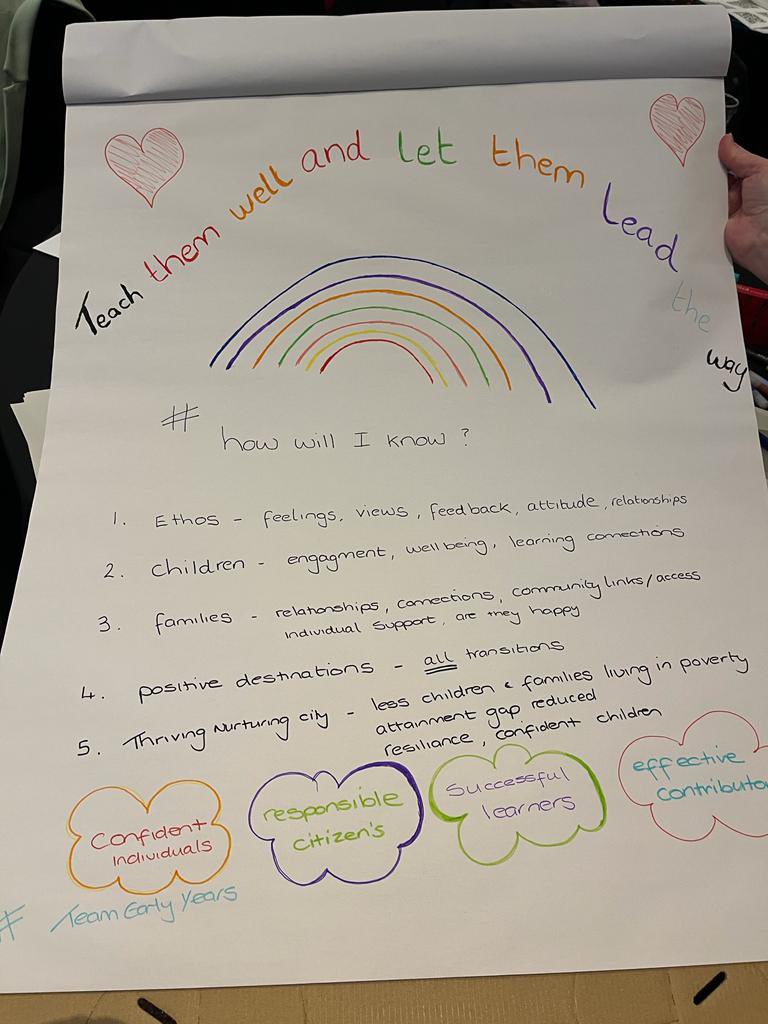 Teach them well and let them Lead the way
# how will I know ?
1. Ethos - feelings, views, feedback, attitude, relationships
2. children - engagment, wellbeing, learning connections
3. families - relationships, connections, community links/access
individual support, are they happy
4. positive destinations - all transitions
5. Thriving Nurturing city - less children & families living in poverty
attainment gap reduced
resiliance, confident children
Confident
individuals
responsible
citizen's
Successful
learners
effective
contributo
# Team Early Years